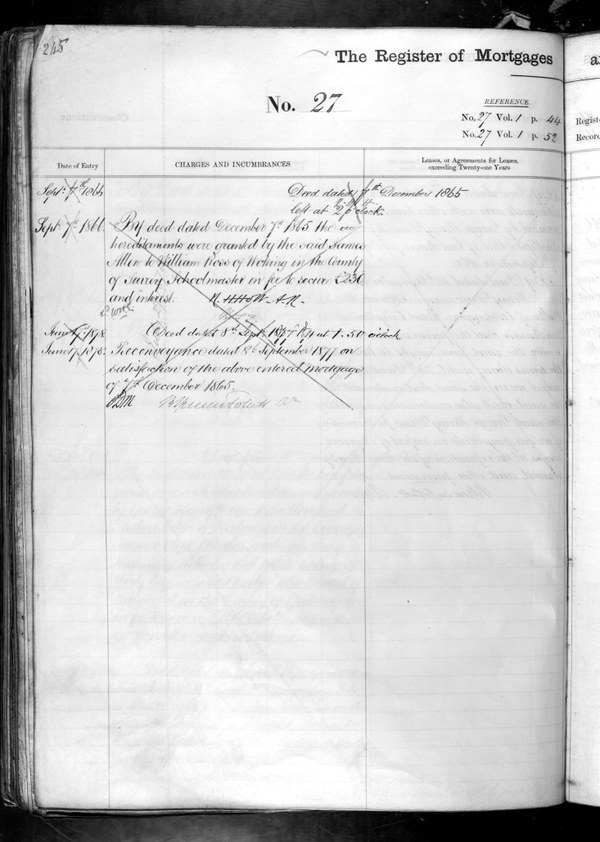 245
The Register of Mortgages a
No. 27
REFERENCE.
No. 27 Vol. 1 p. 44
No. 27 Vol. 1 p. 52
Regist
Record
Date of Entry
CHARGES AND INCUMBRANCES
Leases, or Agreements for Leases,
exceeding Twenty-one Years
Sept. 7th 1866 Deed dated 7th December 1865
left at o'clock.
Sept. 7th 1866. By deed dated December 7th 1865 the
hereditaments were granted by the said James
Allen to William Rose of Woking in the County
of Surrey Schoolmaster in fee to secure £230
and interest.
June 7 1878 Deed dated 8th Sept. 1877 left at 1.50 o'clock
June 7 1878. Reconveyance dated 8th September 1877 on
satisfaction of the above entered mortgage
of 7th December 1865.